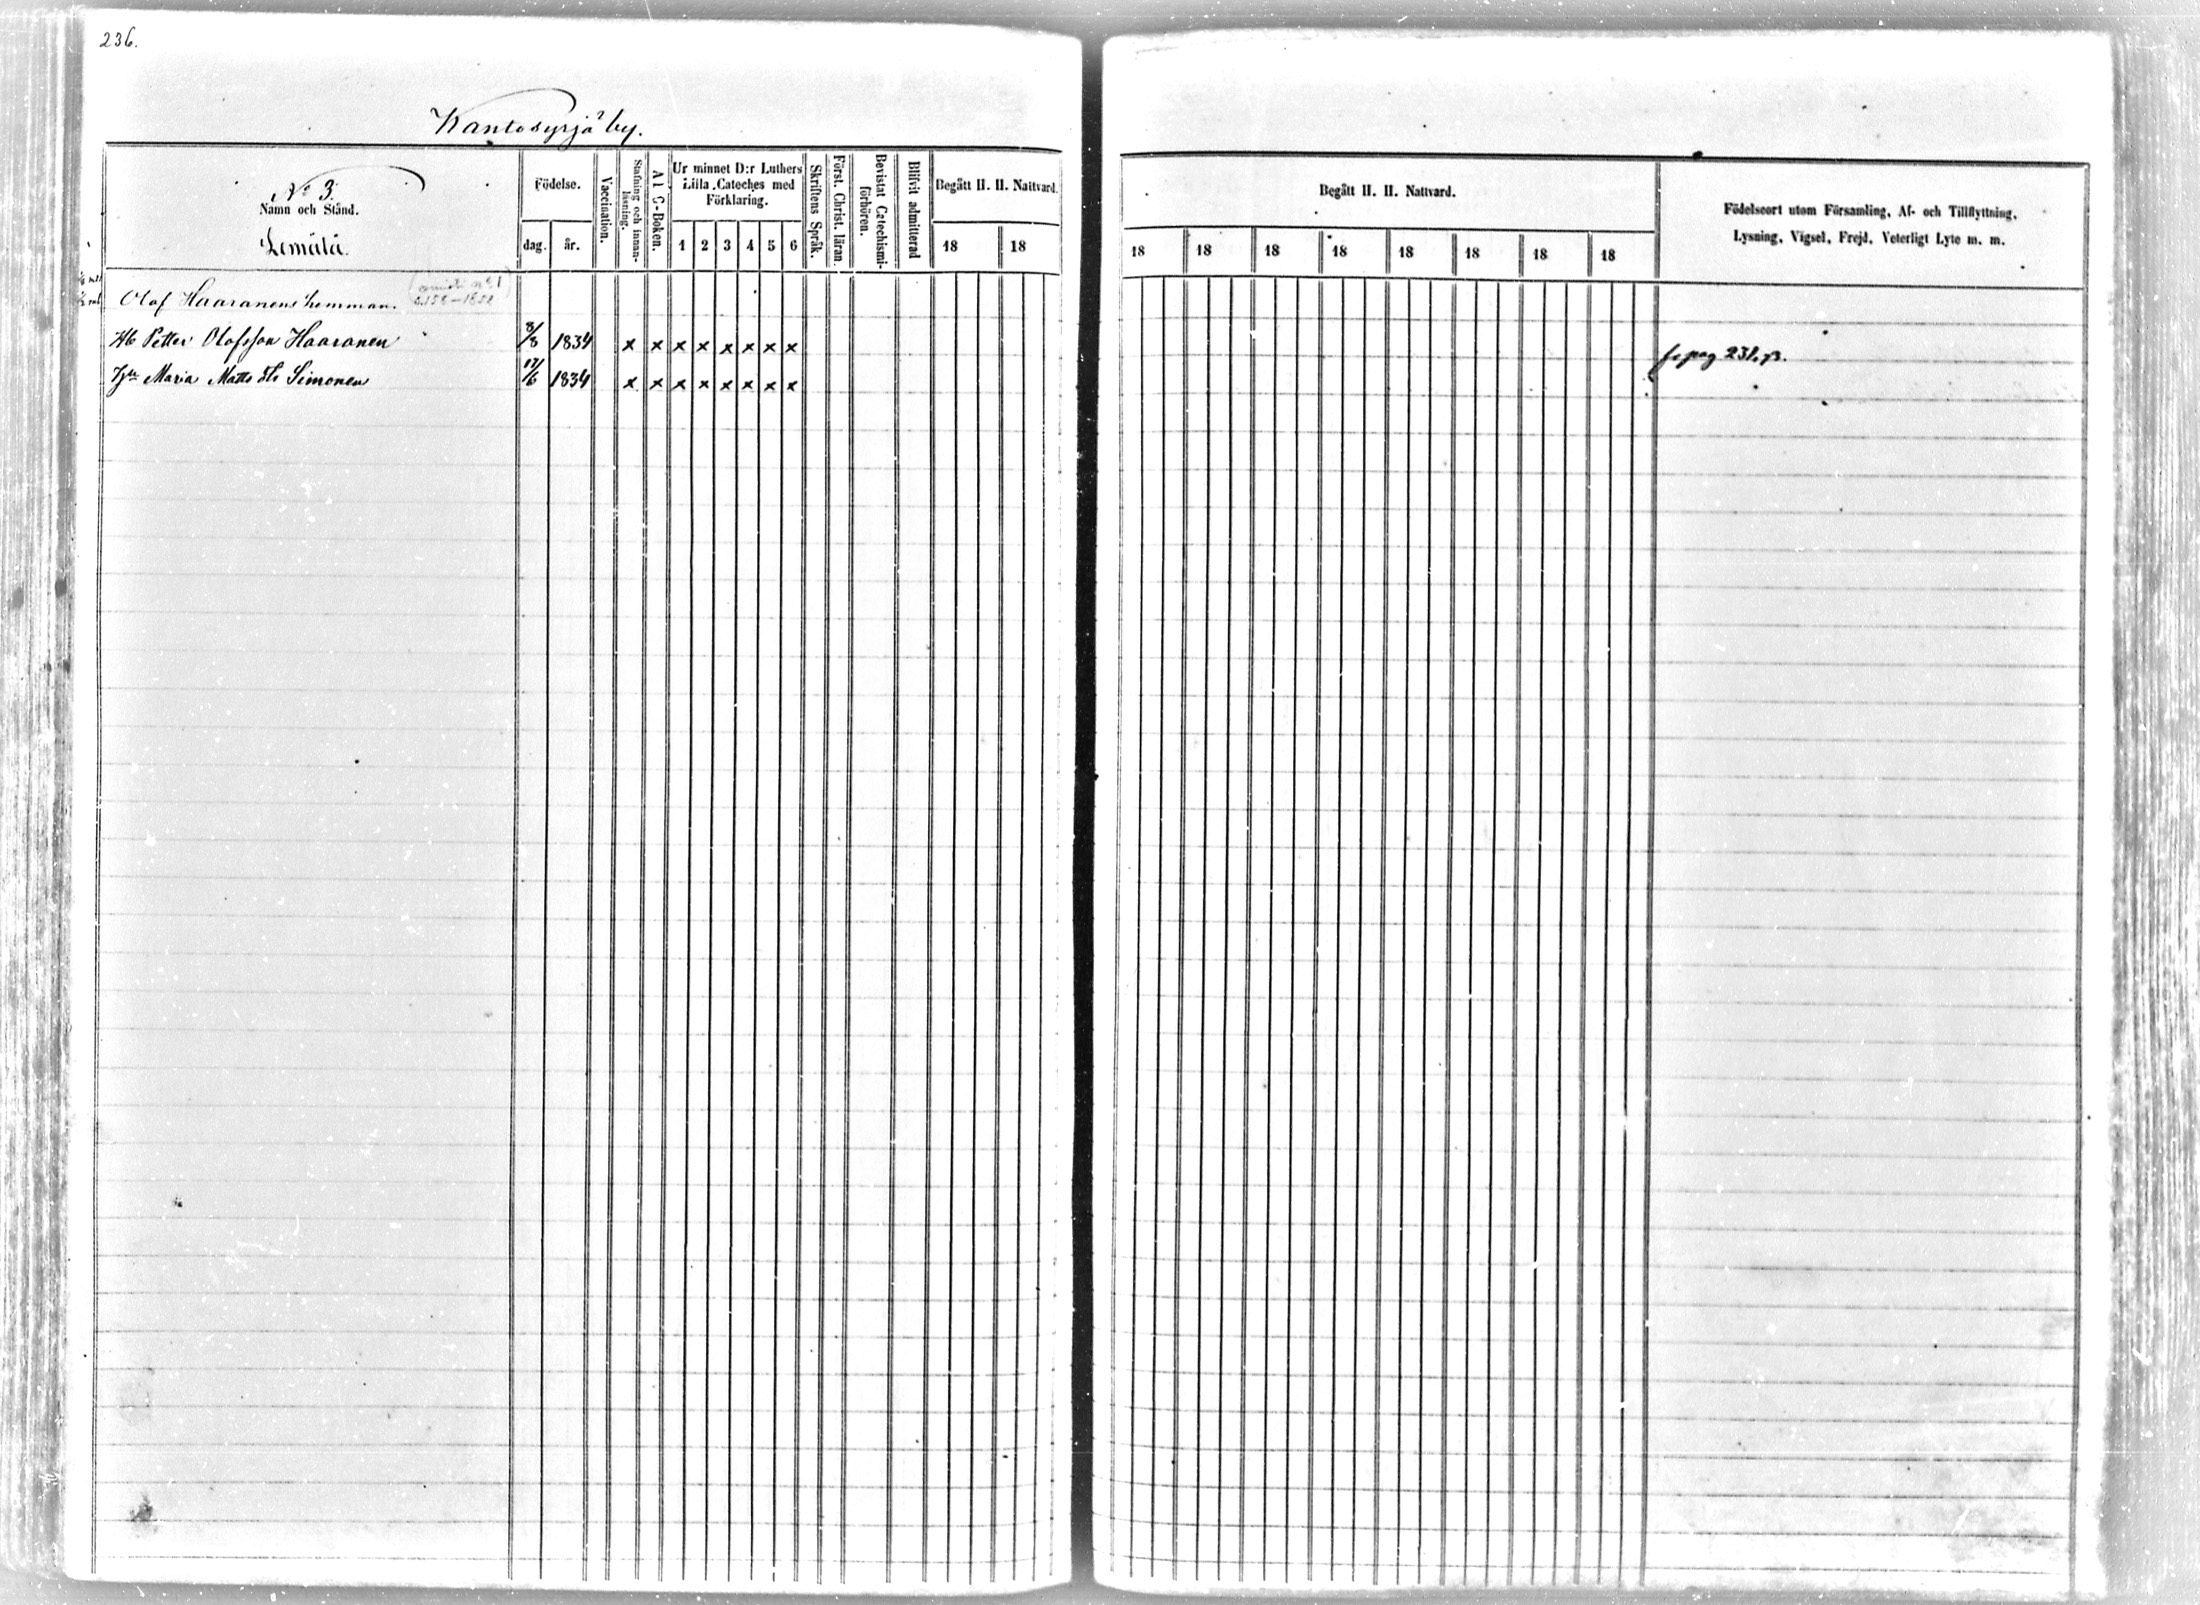 236.
Kantosyrjä by.
No 3.
Namn och Stånd.
Lemälä.
Födelse.
dag.
år.
Vaccination.
Stafning och innan-
läsning.
A B C-Boken.
Ur minnet D:r Luthers
Lilla Cateches med
Förklaring.
1 2 3 4 5 6
Skriftens Språk.
Först. Christ. läran.
Bevistat Catechismi-
förhören.
Blifvit admitterad
Begått H. H. Nattvard.
18 18
Begått H. H. Nattvard.
18 18 18 18 18 18 18 18
Födelseort utom Församling, Af- och Tillflyttning,
Lysning, Vigsel, Frejd, Veterligt Lyte m. m.
Olof Haaranens hemman.
s. 158-1852
Hb Petter Olofsson Haaranen 8/8 1834 x x x x x x x x
fr pag 231. p.
Hu Maria Matts dtr Simonen 17/6 1834 x x x x x x x x